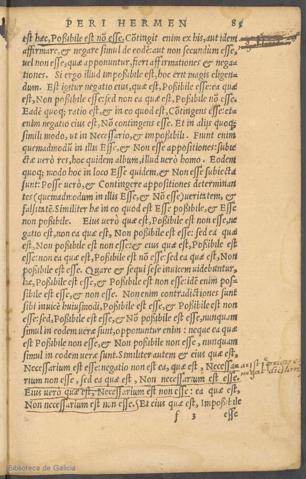 PERI HERMEN 85
est hæc, Poßibile est nõ esse. Cõtingit enim ex his, aut idem
affirmare, & negare simul de eodẽ: aut non secundum esse,
uel non esse, quæ apponuntur, fieri affirmationes & nega
tiones. Si ergo illud impoßibile est, hoc erit magis eligen-
dum. Est igitur negatio eius, quæ est, Poßibile esse: ea quæ
est, Non poßibile esse: sed non ea quæ est, Poßibile nõ esse.
Eadẽ quoq; ratio est, & in eo quod est, Cõtingens esse: et a
enim negatio eius est, Nõ contingens esse. Et in alijs quoq;
simili modo, ut in Necessario, & impoßibili. Fiunt enim
quemadmodũ in illis Esse, & Non esse appositiones: subie
cta uerò res, hoc quidem album, illud uerò homo. Eodem
quoq; modo hoc in loco Esse quidem, & Non esse subiecta
sunt: Posse uerò, & Contingere appositiones determinan
tes (quemadmodum in illis Esse, & Nõ esse) ueritatem, &
falsitatẽ. Similiter hæ in eo quod est Esse poßibile, & Esse
non poßibile. Eius uerò quæ est, Poßibile est non esse, ne
gatio est, non ea quæ est, Non poßibile est esse: sed ea quæ
est, Non poßibile est nõ esse: & eius quæ est, Poßibile est
esse: non ea quæ est, Poßibile est nõ esse: sed ea quæ est, Non
poßibile est esse. Quare & sequi sese inuicem uidebuntur,
hæ, Poßibile est esse, & Poßibile est non esse: idẽ enim pos-
sibile est esse, & non esse. Non enim contradictiones sunt
sibi inuicẽ huiusmodi, Poßibile est esse, & Poßibile est non
esse: sed, Poßibile est esse, & Nõ poßibile est esse, nunquam
simul in eodem ueræ sunt, opponuntur enim: neque ea quæ
est Poßibile non esse, & Non poßibile non esse, nunquam
simul in eodem ueræ sunt. Similiter autem & eius quæ est,
Necessarium est esse: negatio non est ea, quæ est, Necessa
rium non esse, sed ea quæ est, Non necessarium est esse.
Eius uerò quæ est, Necessarium est non esse: ea quæ est,
Non necessarium est non esse. Et eius quæ est, Impoßibile
f 3 esse
Biblioteca de Galicia